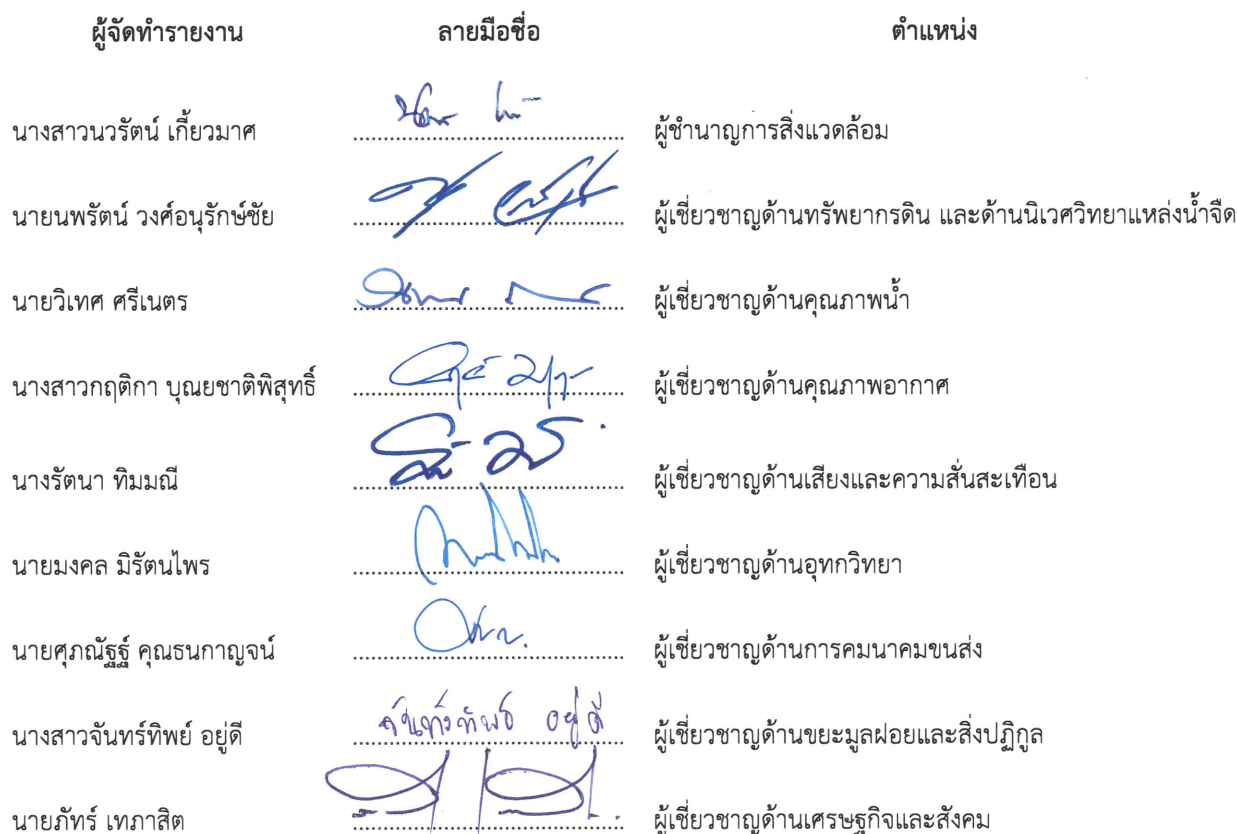 ผู้จัดทำรายงาน ลายมือชื่อ ตำแหน่ง
นางสาวนวรัตน์ เกี้ยวมาศ ผู้ชำนาญการสิ่งแวดล้อม
นายนพรัตน์ วงศ์อนุรักษ์ชัย ผู้เชี่ยวชาญด้านทรัพยากรดิน และด้านนิเวศวิทยาแหล่งน้ำจืด
นายวิเทศ ศรีเนตร ผู้เชี่ยวชาญด้านคุณภาพน้ำ
นางสาวกฤติกา บุณยชาติพิสุทธิ์ ผู้เชี่ยวชาญด้านคุณภาพอากาศ
นางรัตนา ทิมมณี ผู้เชี่ยวชาญด้านเสียงและความสั่นสะเทือน
นายมงคล มิรัตนไพร ผู้เชี่ยวชาญด้านอุทกวิทยา
นายศุภณัฐฐ์ คุณธนกาญจน์ ผู้เชี่ยวชาญด้านการคมนาคมขนส่ง
นางสาวจันทร์ทิพย์ อยู่ดี จันทร์ทิพย์ อยู่ดี ผู้เชี่ยวชาญด้านขยะมูลฝอยและสิ่งปฏิกูล
นายภัทร์ เทภาสิต ผู้เชี่ยวชาญด้านเศรษฐกิจและสังคม